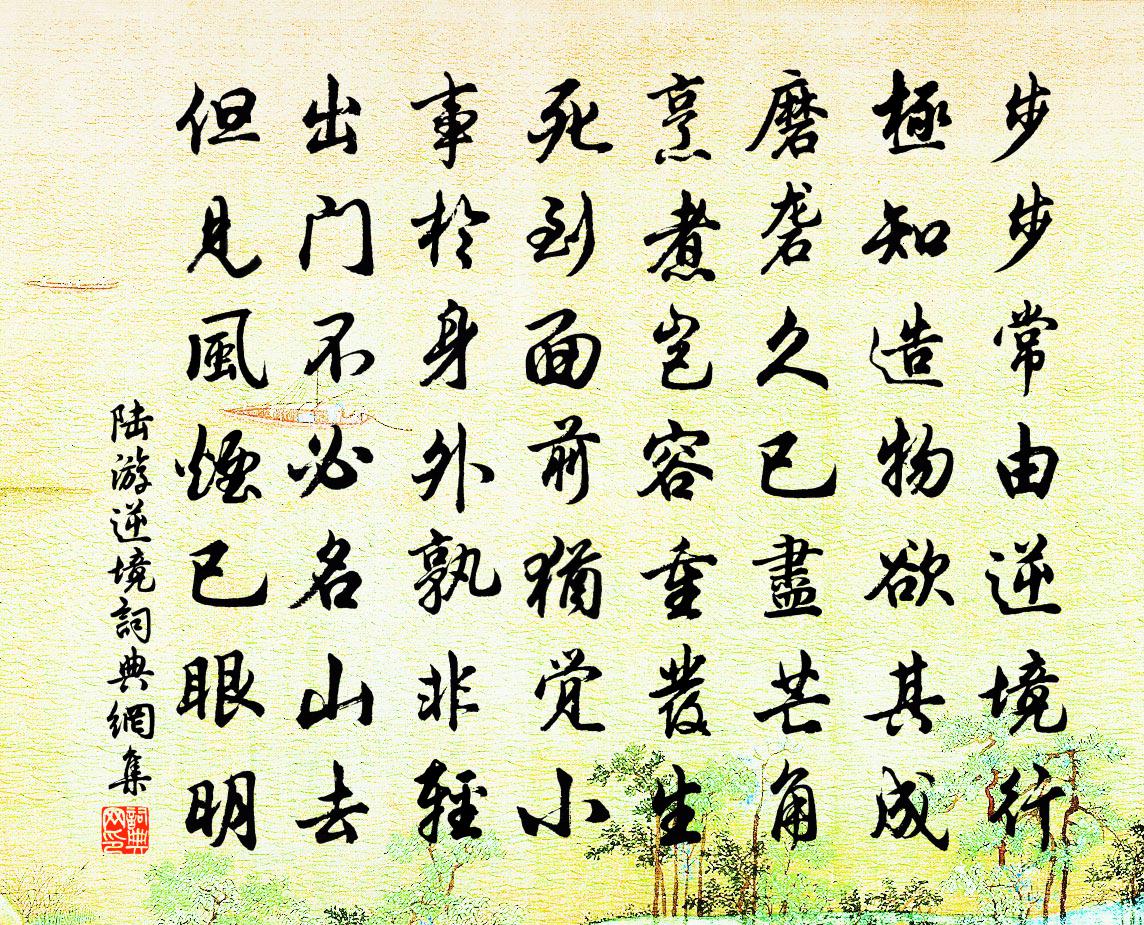 步步常由逆境行
極知造物欲其成
磨砻久已盡芒角
烹煮岂容重發生
死到面前猶觉小
事於身外孰非輕
出门不必名山去
但見風煙已眼明
陆游逆境詞典網集
詞典网印